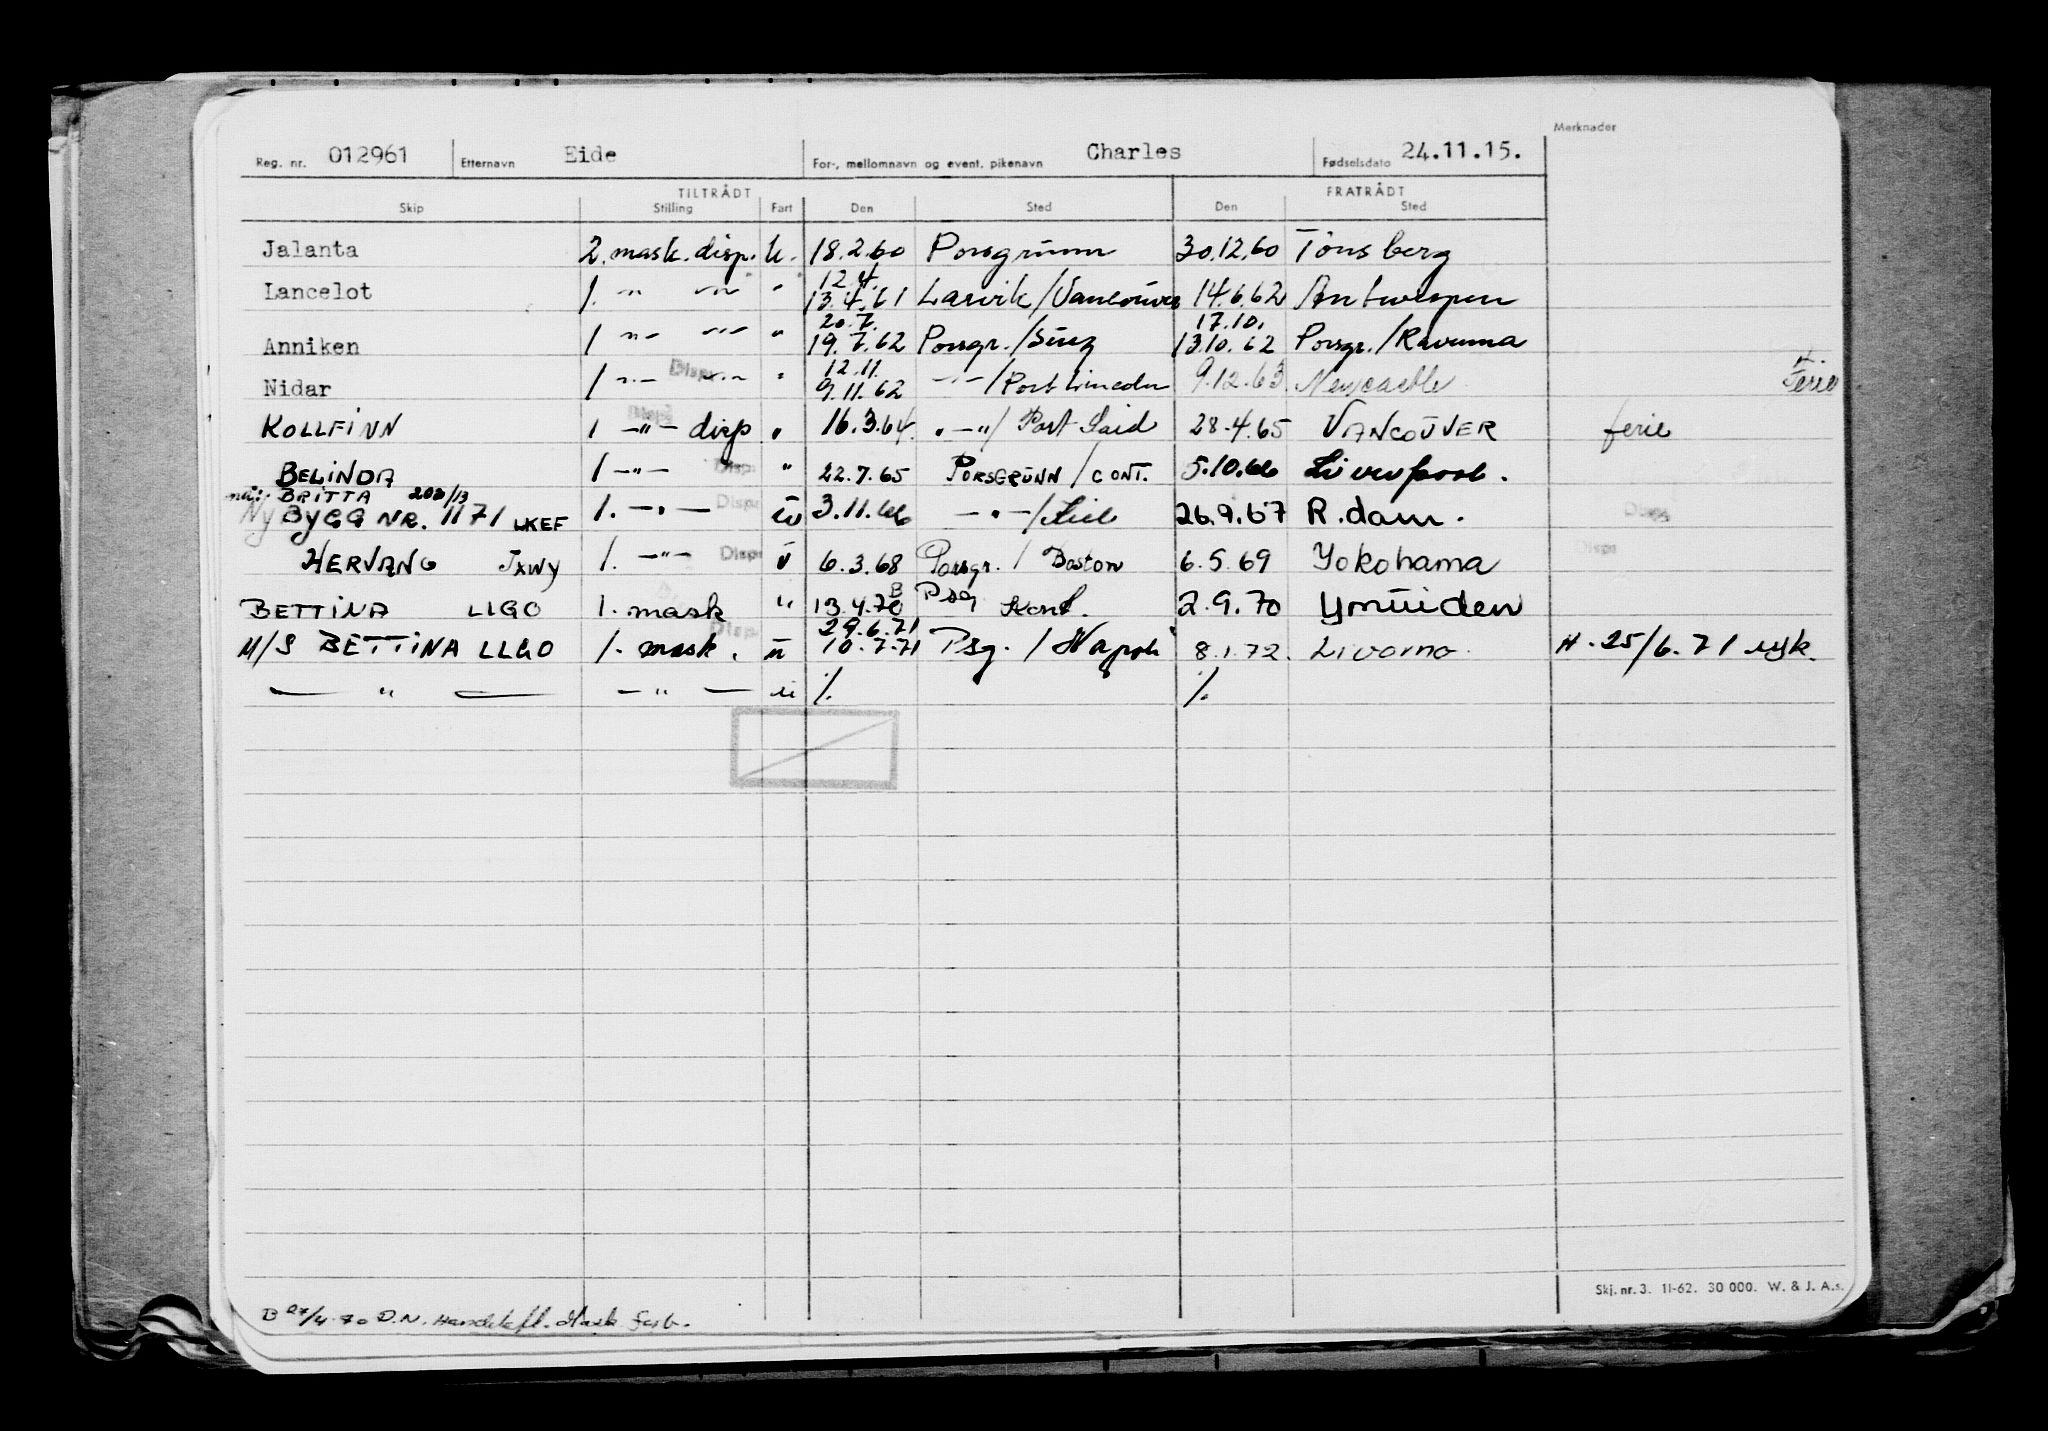 Merknader
Reg. nr. 012961 Etternavn Eide For-, mellomnavn og event. pikenavn Charles Fødselsdato 24.11.15.
TILTRÅDT FRATRÅDT
Skip Stilling Fart Den Sted Den Sted
Jalanta 2. mask. disp. u. 18.2.60 Porsgrunn 30.12.60 Tönsberg
12.4.
Lancelot 1. -"- -"- " 13.4.61 Larvik/Vancouver 14.6.62 Antwerpen
20.7. 17.10.
Anniken 1 -"- -"- " 19.7.62 Porsgr./Suez 13.10.62 Porsgr./Ravenna
12.11.
Nidar 1 -"- Disp -"- " 9.11.62 -"-/Port 9.12.63 Newcastle Ferie
KOLLFINN 1 -"- disp " 16.3.64. -"-/Port Said 28.4.65 VANCOUVER ferie
BELINDA 1 -"- Disp " 22.7.65 PORSGRUNN/CONT. 5.10.66 Liverpool.
nå: BRITTA 200/13
Ny BYGG NR. 1171 LKEF 1. -"- Disp u 3.11.66 -"-/Kiel 26.9.67 R.dam. Disp
HERVANG JXWY 1. -"- Disp u 6.3.68 Porsgr. / Boston 6.5.69 Yokohama Disp
BETTINA LLGO 1. mask " 13.4.70 B Psg Kont. 2.9.70 Ymuiden
29.6.71
M/S BETTINA LLGO 1. mask. Disp u 10.7.71 Psg. / Napoli 8.1.72. Livorno H. 25/6.71 syk.
— " — — " — u % %
Skj. nr. 3. 11-62. 30 000. W. & J. A.s.
B 27/4 70 D.N. Handelsfl. Mask forb.